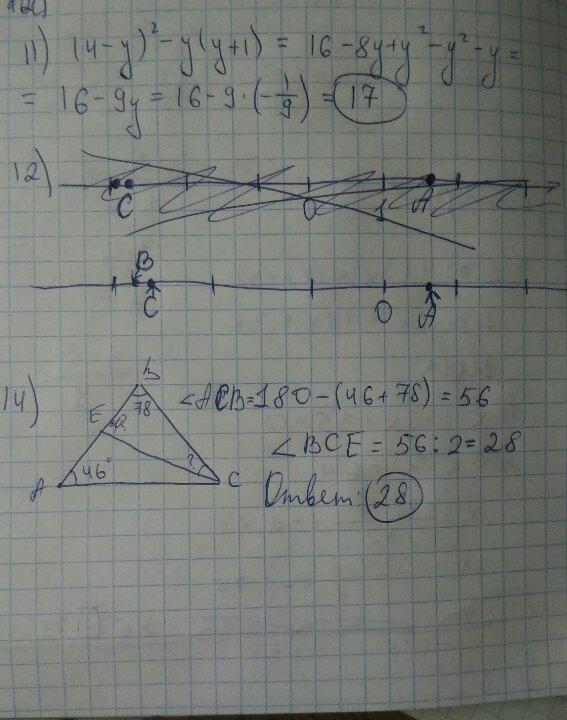 11) (4-y)² - y(y+1) = 16 - 8y + y² - y² - y =
= 16 - 9y = 16 - 9·(-1/9) = 17
12)
C 0 1 A
B
C 0 A
14)
B
78
E
A 46° ? C
∠ACB = 180 - (46 + 78) = 56
∠BCE = 56 : 2 = 28
Ответ: 28